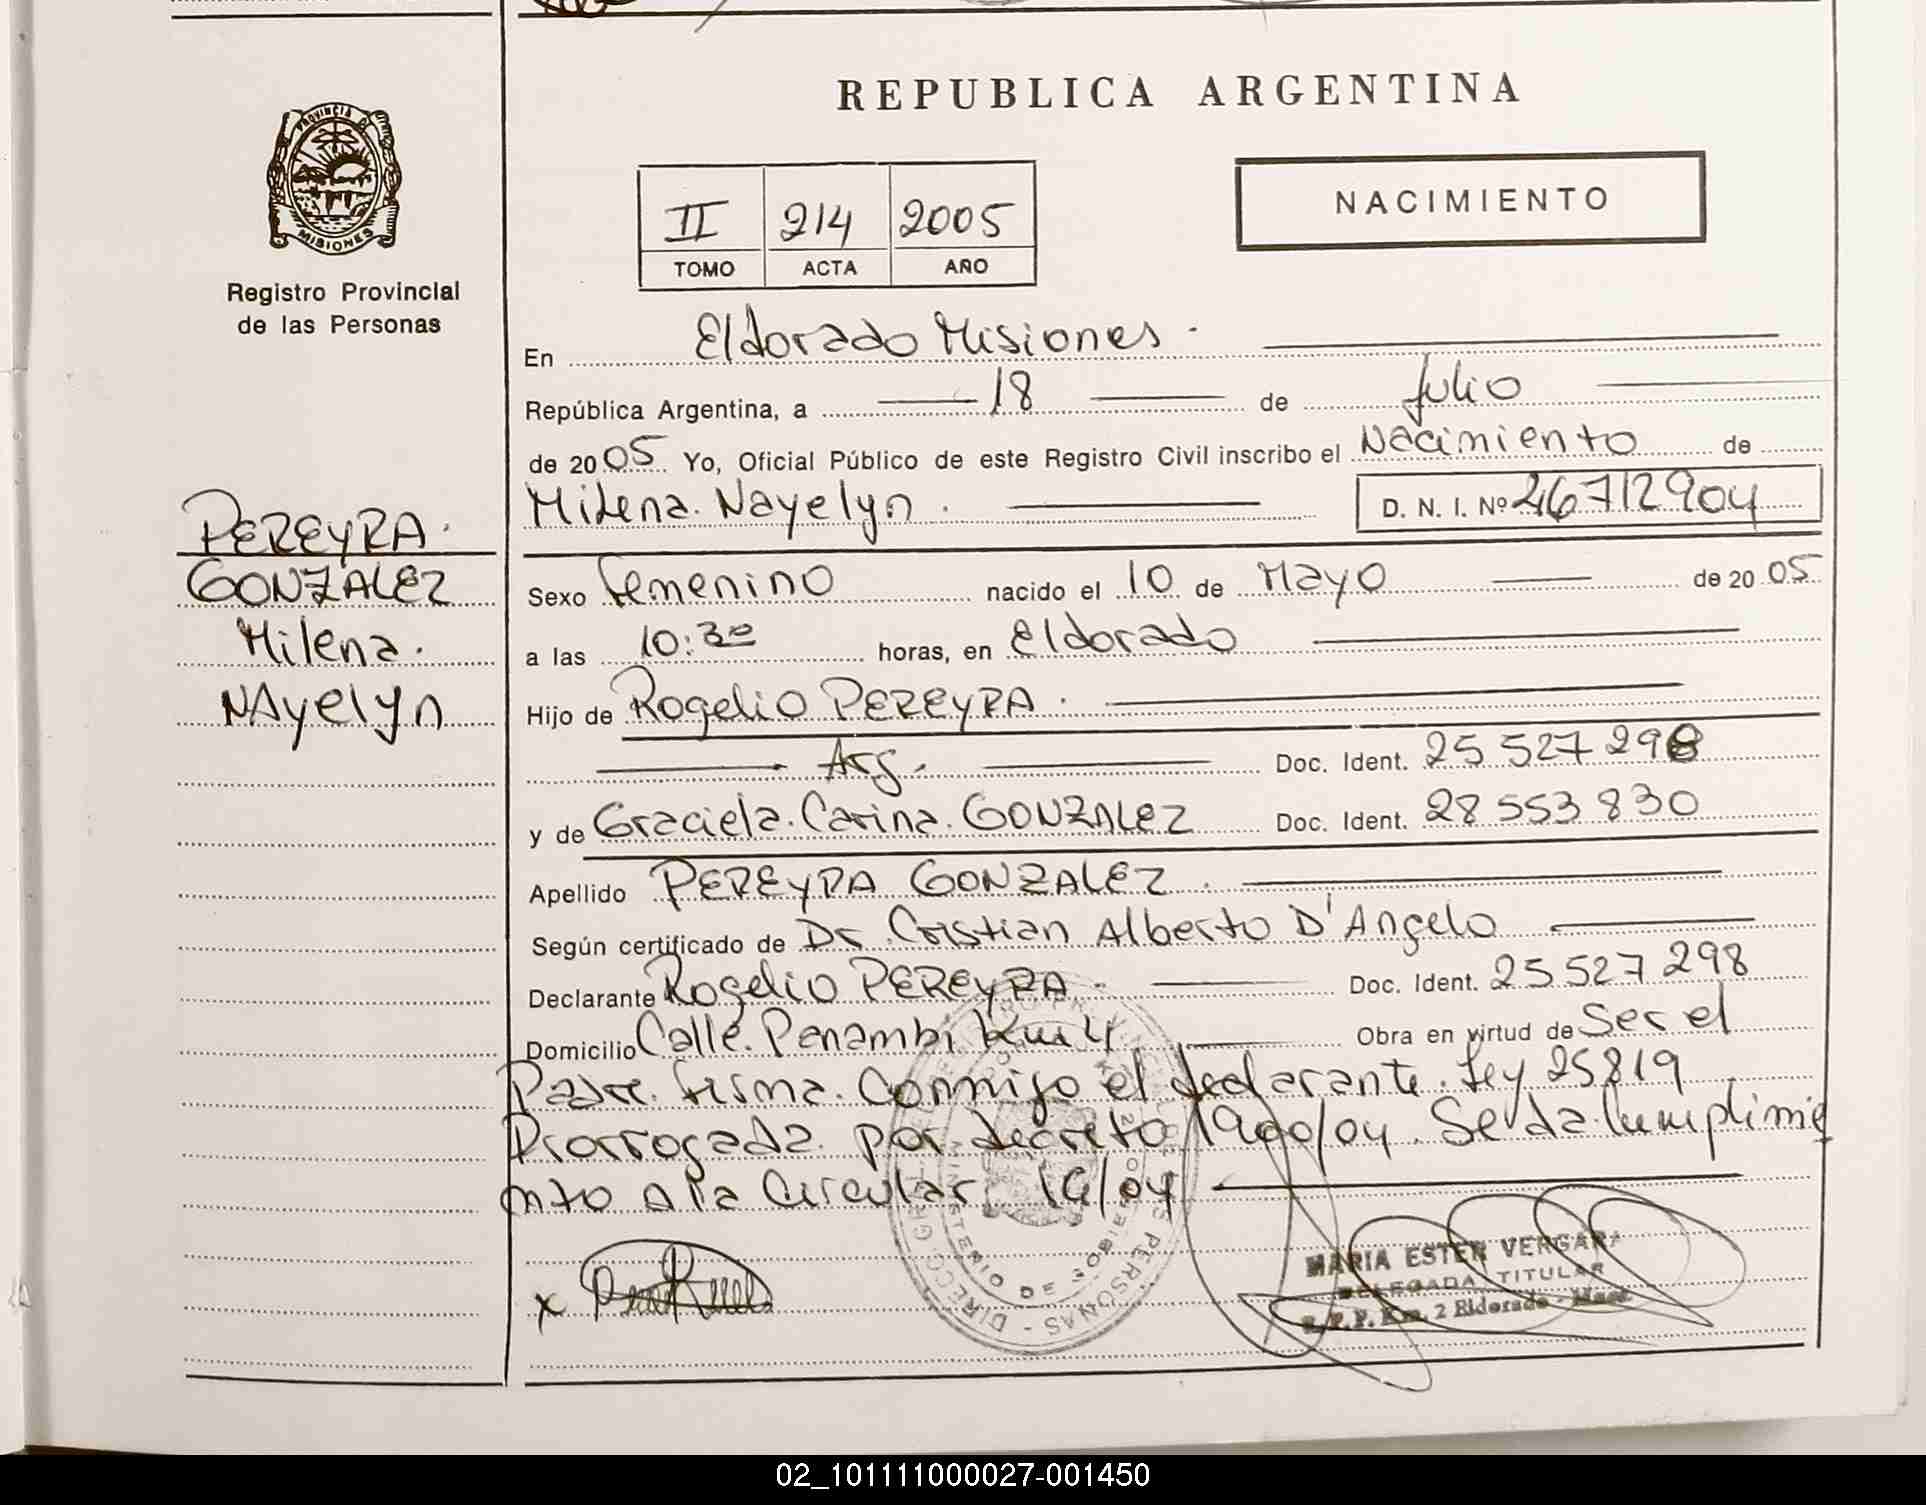 PROVINCIA DE
MISIONES
Registro Provincial
de las Personas
PEREYRA.
GONZALEZ
Milena.
NAyelyn
REPUBLICA ARGENTINA
II 214 2005
TOMO ACTA AÑO
NACIMIENTO
En Eldorado Misiones.
República Argentina, a 18 de Julio
de 2005 Yo, Oficial Público de este Registro Civil inscribo el Nacimiento de
Milena. Nayelyn. D. N. I. Nº 46712904
Sexo Femenino nacido el 10 de Mayo de 2005
a las 10:30 horas, en Eldorado
Hijo de Rogelio PEREYRA.
Arg. Doc. Ident. 25 527 298
y de Graciela. Carina. GONZALEZ Doc. Ident. 28 553 830
Apellido PEREYRA GONZALEZ.
Según certificado de Dr. Cristian Alberto D'Angelo
Declarante Rogelio PEREYRA. Doc. Ident. 25 527 298
Domicilio Calle. Penambi Km 4 Obra en virtud de Ser el
Padre. firma. Conmigo el declarante. Ley 25819
Prorrogada. por decreto 1900/04. Se da. Cumplimie
nto A la Circular. 19/04
MARIA ESTER VERGARA
DELEGADA TITULAR
R.P.P. Km. 2 Eldorado - Mnes.
MINISTERIO DE GOBIERNO
02_101111000027-001450